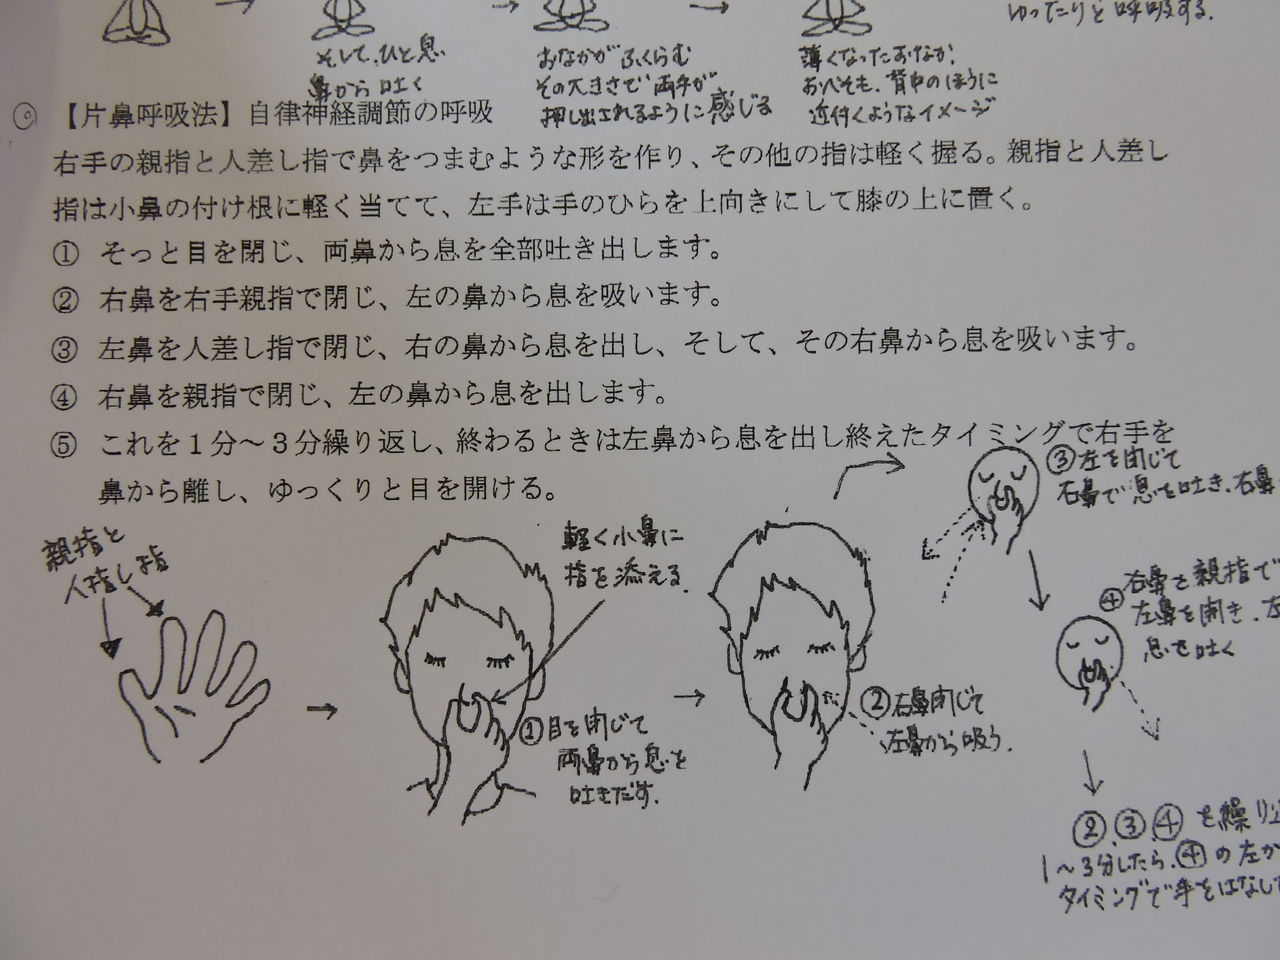 そして、ひと息
鼻から吐く
おなかがふくらむ
その大きさで両手が
押し出されるように感じる
薄くなったおなか、
おへそも、背中のほうに
近付くようなイメージ
ゆったりと呼吸する。
【片鼻呼吸法】自律神経調節の呼吸
右手の親指と人差し指で鼻をつまむような形を作り、その他の指は軽く握る。親指と人差し
指は小鼻の付け根に軽く当てて、左手は手のひらを上向きにして膝の上に置く。
① そっと目を閉じ、両鼻から息を全部吐き出します。
② 右鼻を右手親指で閉じ、左の鼻から息を吸います。
③ 左鼻を人差し指で閉じ、右の鼻から息を出し、そして、その右鼻から息を吸います。
④ 右鼻を親指で閉じ、左の鼻から息を出します。
⑤ これを１分～３分繰り返し、終わるときは左鼻から息を出し終えたタイミングで右手を
鼻から離し、ゆっくりと目を開ける。
親指と
人指し指
軽く小鼻に
指を添える。
①目を閉じて
両鼻から息を
吐きだす。
②右鼻閉じて
左鼻から吸う。
③左を閉じて
右鼻で息を吐き、右鼻
④右鼻を親指で
左鼻を開き、左
息を吐く
②③④を繰り
1～3分したら、④の左か
タイミングで手をはなして